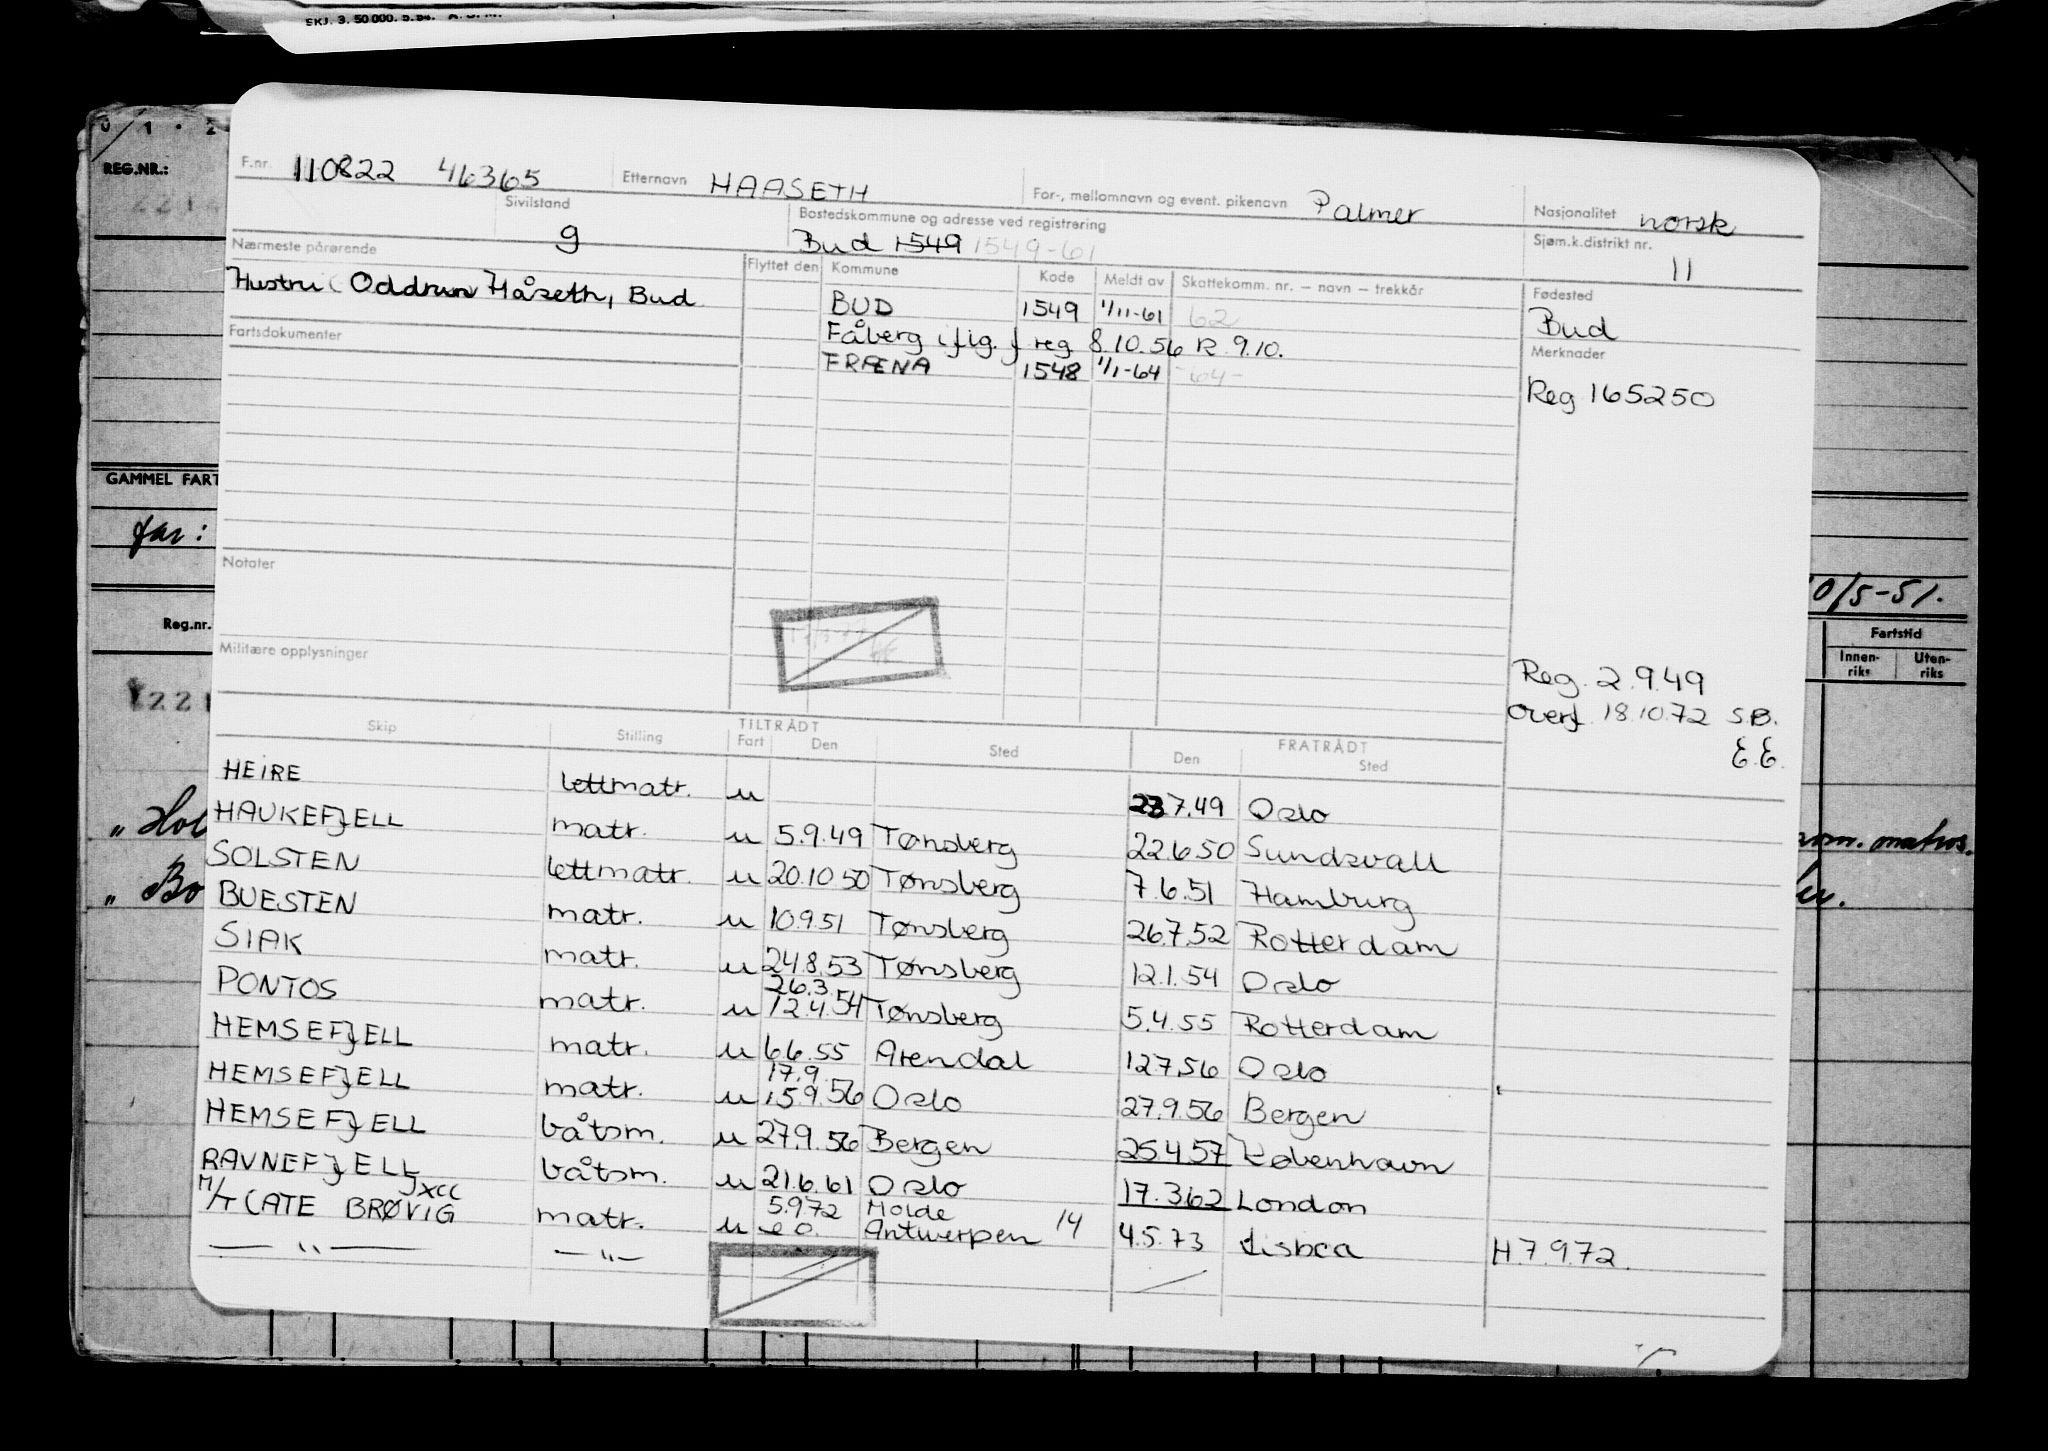 SKJ. 3. 50 000. 5.54. A. S. M.
0 1 . 2
REG.NR.:
GAMMEL FART
far:
Reg.nr.
221
" Hol
" Bo
10/5-51.
Fartstid
Innen-riks Uten-riks
matros.
F.nr. 110822 46365 Etternavn HAASETH For-, mellomnavn og event. pikenavn Palmer Nasjonalitet norsk
Sivilstand g Bostedskommune og adresse ved registrering Bud 1549 1549-61 Sjøm.k.distrikt nr. 11
Nærmeste pårørende Flyttet den Kommune Kode Meldt av Skattekomm. nr. – navn – trekkår Fødested
Hustru Oddrun Håseth, Bud BUD 1549 1/11-61 62 Bud
Fartsdokumenter Fåberg iflg. f reg 8.10.56 R 9.10. Merknader
FRÆNA 1548 1/1-64 -64-
Reg 165250
Notater
Militære opplysninger
Reg. 2.9.49
Overf 18.10.72 S.B.
E.E.
Skip Stilling TILTRÅDT Fart Den Sted FRATRÅDT Den Sted
HEIRE lettmatr. u 23 7.49 Oslo
HAUKEFJELL matr. u 5.9.49 Tønsberg 22.6.50 Sundsvall
SOLSTEN lettmatr. u 20.10 50 Tønsberg 7.6.51 Hamburg
BUESTEN matr. u 10.9.51 Tønsberg 26.7.52 Rotterdam
SIAK matr. u 24.8.53 Tønsberg 12.1.54 Oslo
26.3
PONTOS matr. u 12.4.54 Tønsberg 5.4.55 Rotterdam
HEMSEFJELL matr. u 6.6.55 Arendal 12.7.56 Oslo
17.9
HEMSEFJELL matr. u 15.9.56 Oslo 27.9.56 Bergen
HEMSEFJELL båtsm. u 27.9.56 Bergen 25.4.57 København
RAVNEFJELL båtsm. u 21.6.61 Oslo 17.3.62 London
JXCC 5.9.72 Molde
M/T CATE BRØVIG matr. u e o. Antwerpen 14 4.5.73 Lisboa H.7.9.72.
— " — — " —